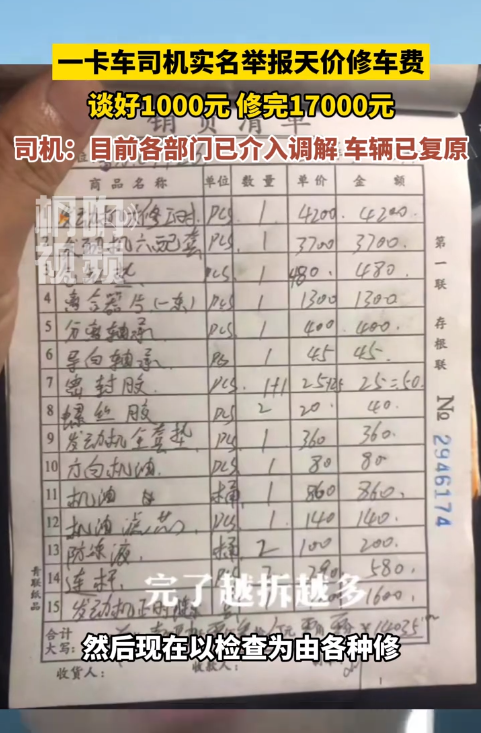 一卡车司机实名举报天价修车费
谈好1000元 修完17000元
销货清单
司机：目前各部门已介入调解 车辆已复原
商品名称 单位 数量 单价 金额
1 4200 4200
发动机六配套 PCS 1 3700 3700
3 PCS 1 480 480
4 离合器片(一东) PCS 1 1300 1300
5 分离轴承 PCS 1 400 400
6 导向轴承 PCS 1 45 45
7 密封胶 PCS 1+1 25 25=50
8 螺丝胶 PCS 2 20 40
9 发动机全套垫 PCS 1 360 360
10 方向机油 PCS 1 80 80
11 机油 桶 1 860 860
12 机油滤芯 PCS 1 140 140
13 防冻液 桶 2 100 200
14 连杆 290 580
15 发动机 1600
合计
大写： 14035
收货人：
第一联 存根联
№ 2946174
青联纸品
完了越拆越多
然后现在以检查为由各种修